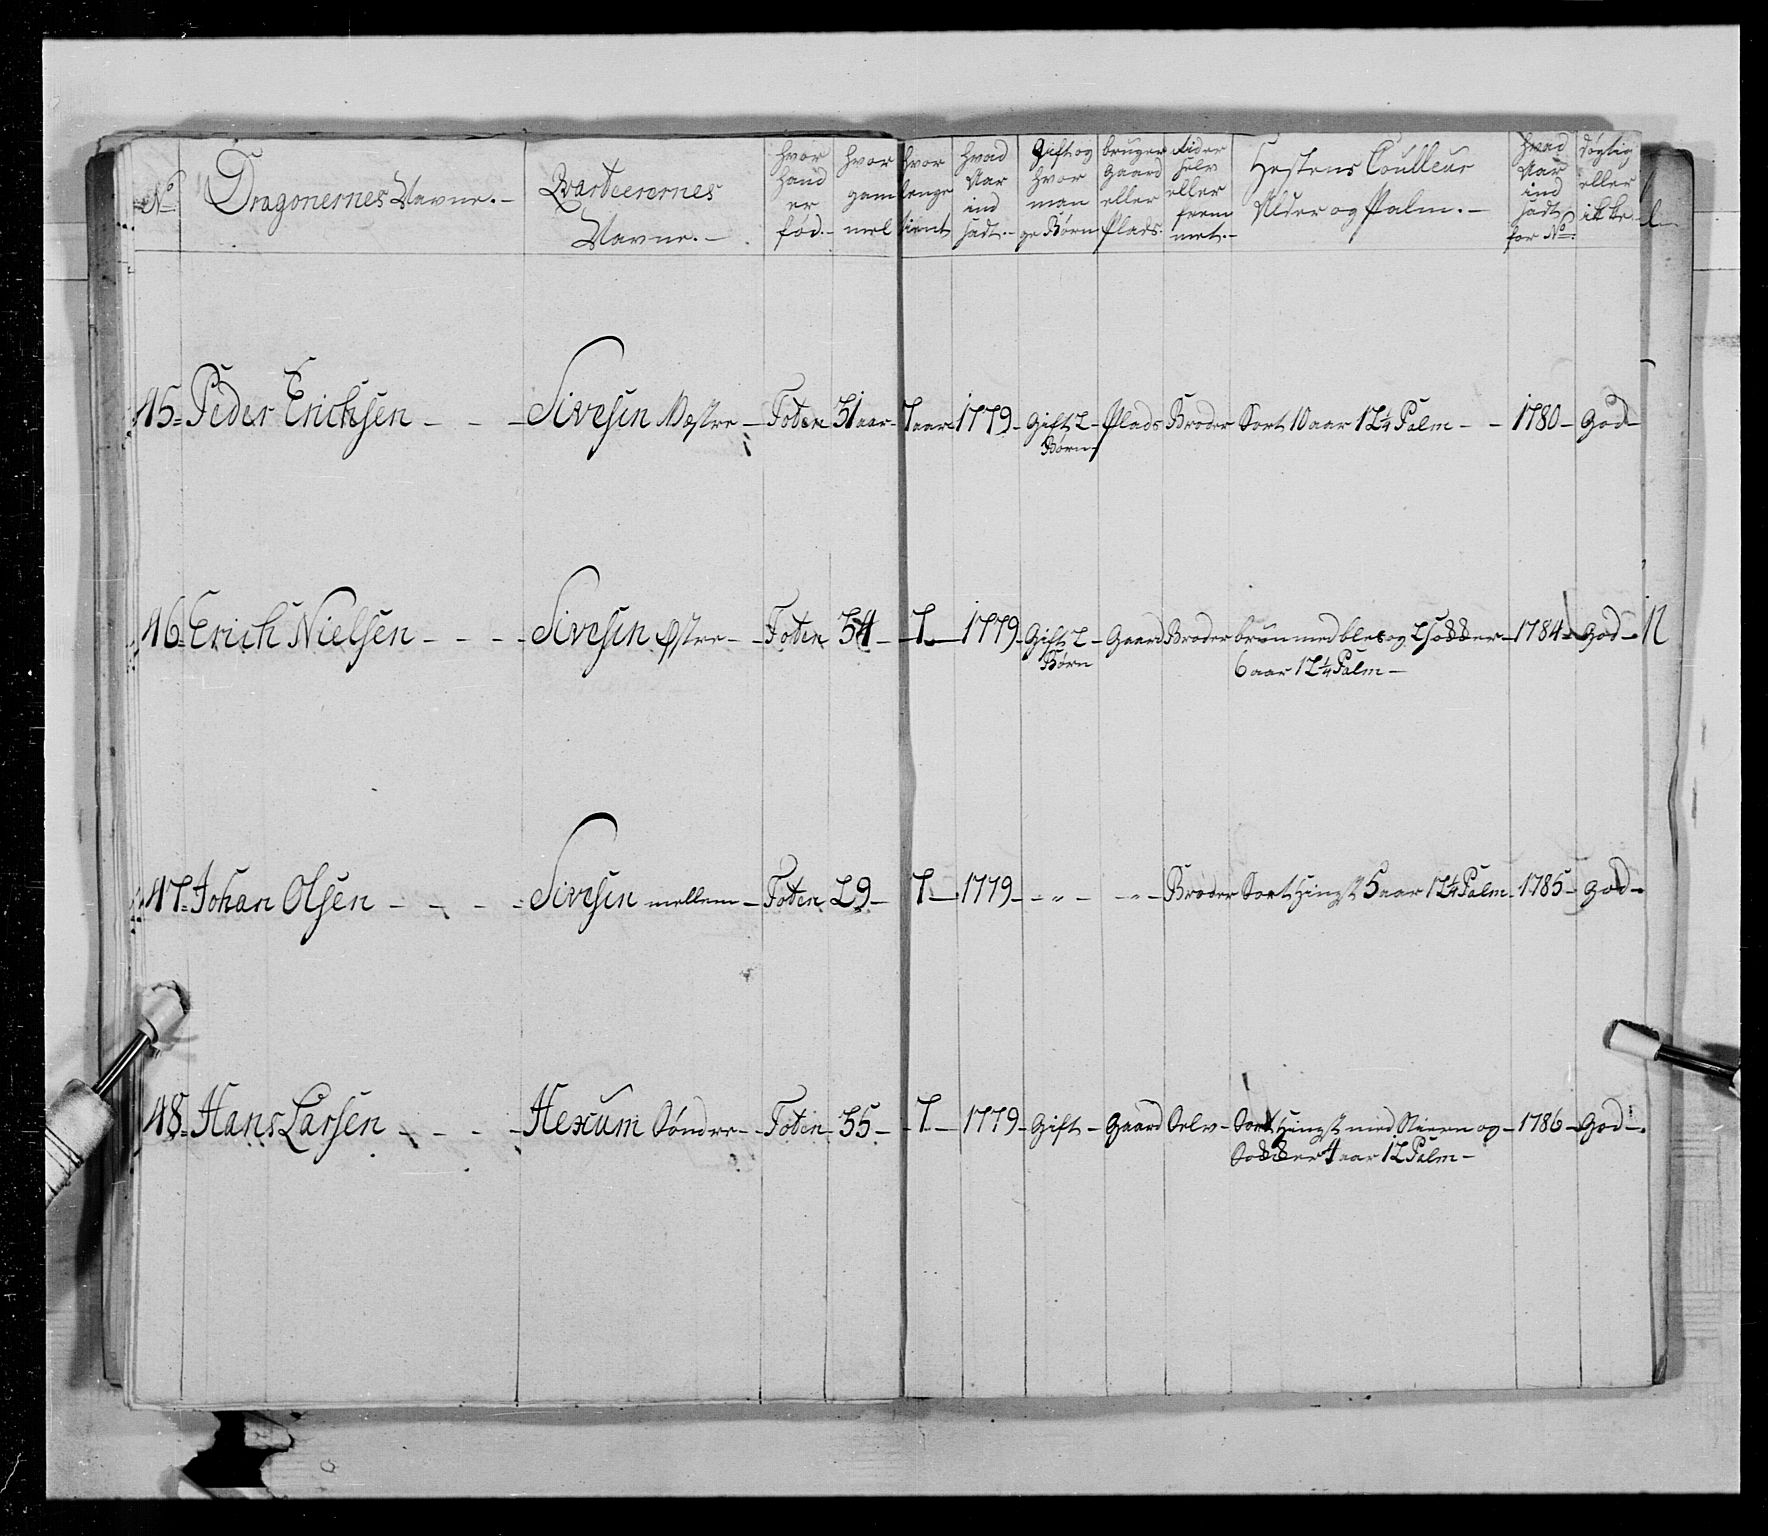 No. Dragonernes Navne.- Qvarteerernes Navne.- hvor hand er fød.- hvor gam mel hvor lenge tient hvad Aar ind sadt.- Gift og hvor man ge Børn bruger Gaard eller Plads. Rider selv eller frem met.- Hestens Coulleur Alder og Palm.- hvad Aar ind sadt for No. døgtig eller ikke
45- Peder Erichsen - - - Sivesin Vestre - Toten 31 aar- 7 aar 1779- Gift 2- Plads Broder Sort 10 aar 12¼ Palm - - 1780- God-
Børn
46- Erich Nielsen - - - - Sivesin Østre - - Toten 34 - - 7 - 1779- Gift 2- Gaard Broder brun med bles og 2 Sokker - 1784- God-
Børn 6 aar 12¼ Palm -
47- Johan Olsen - - - - Sivesin mellem - Toten 29 - 7 - 1779- - " - - " - Broder Sort Hingst 5 aar 12¼ Palm - 1785- God-
48- Hans Larsen - - - - Hexum Søndre - - Toten - 35 - - 7 - 1779- Gift - Gaard Selv - Sort Hingst med Stiern og - 1786- God-
Sokker 4 aar 12 Palm -